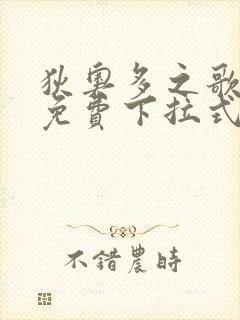 狄奧多之歌
免費下拉式
不錯農時